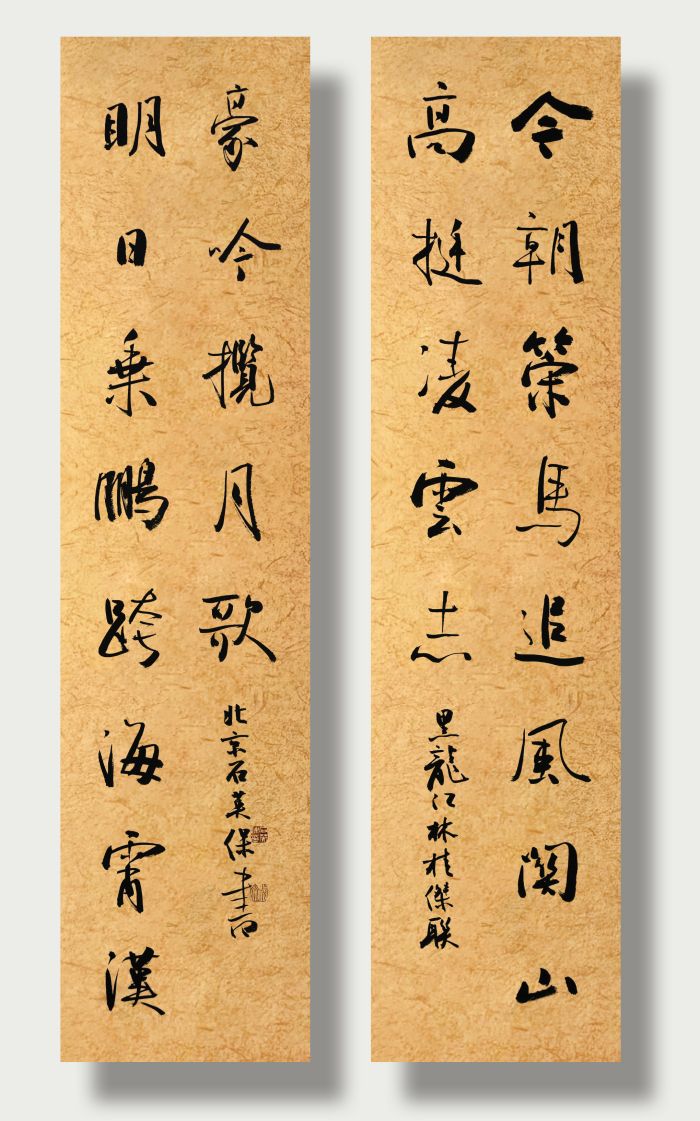 今朝策馬追風関山
高挺凌雲志
黑龍江林桂傑联
明日乘鵬跨海霄漢
豪吟攬月歌
北京石英保書